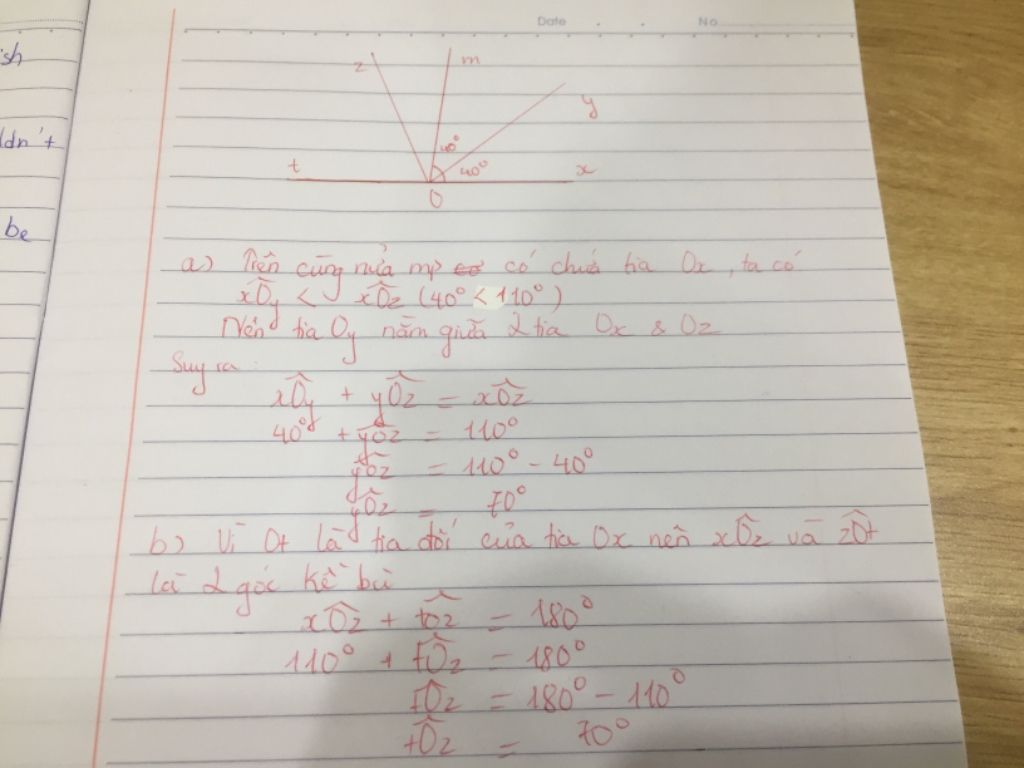 Date No
ish
ldn't
be
z m y
40°
t 40° x
O
a) Trên cùng nửa mp có chứa tia Ox, ta có
xÔy < xÔz (40° < 110°)
Nên tia Oy nằm giữa 2 tia Ox & Oz
Suy ra:
xÔy + yÔz = xÔz
40° + yÔz = 110°
yÔz = 110° - 40°
yÔz = 70°
b) Vì Ot là tia đối của tia Ox nên xÔz và zÔt
là 2 góc kề bù
xÔz + tÔz = 180°
110° + tÔz = 180°
tÔz = 180° - 110°
tÔz = 70°